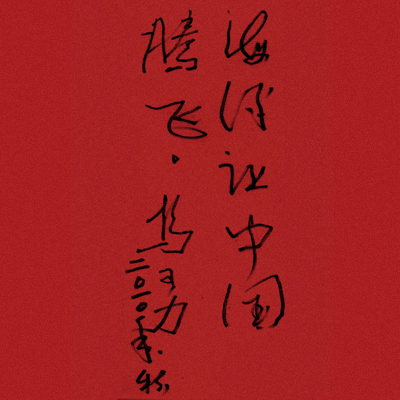 海洋让中国
腾飞。
二〇一〇年.秋